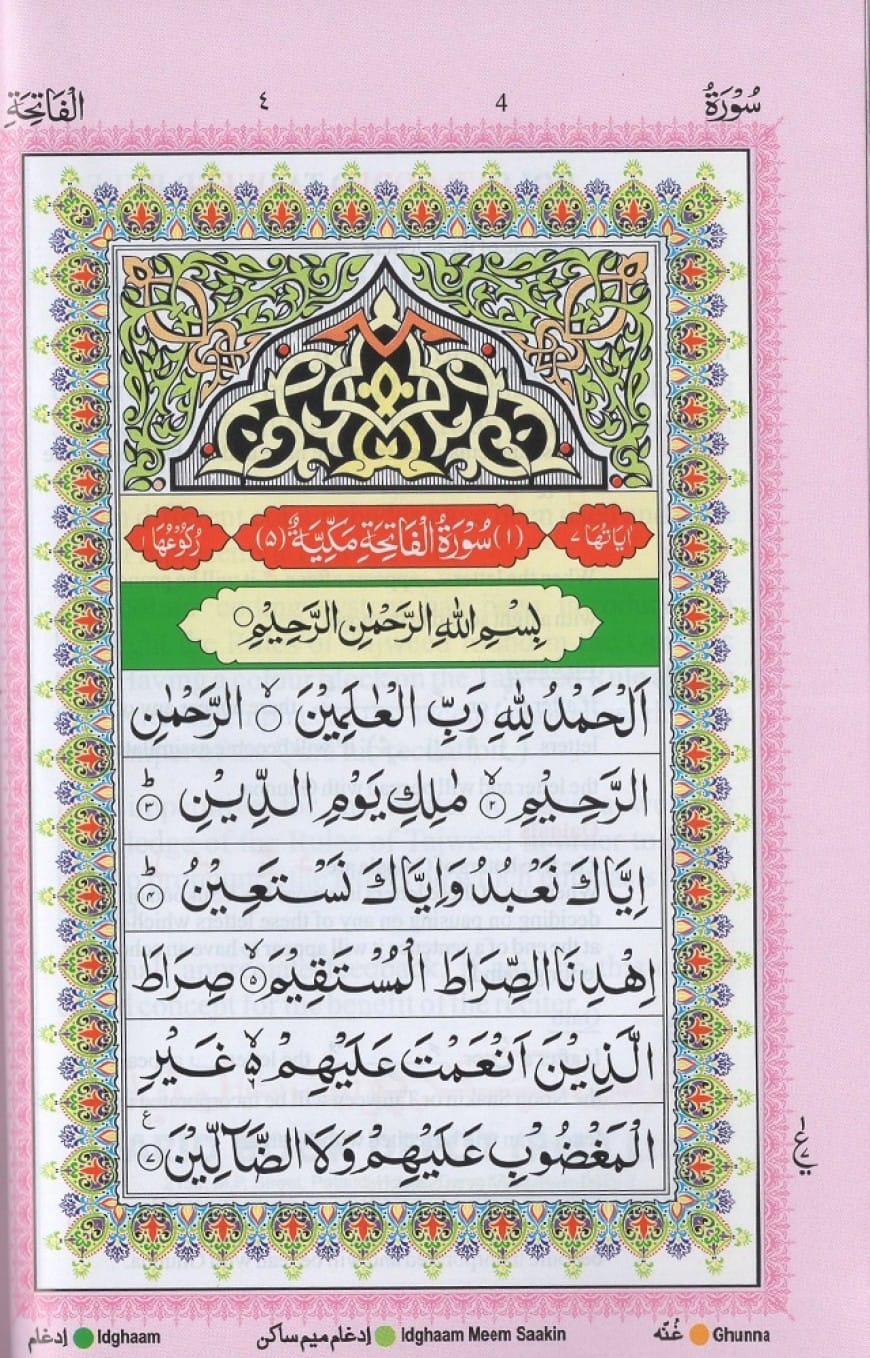 سُوْرَةُ 4 ٤ الْفَاتِحَةِ
اٰيَاتُهَا ٧ (١) سُوْرَةُ الْفَاتِحَةِ مَكِّيَّةٌ (٥) رُكُوْعُهَا ١
بِسْمِ اللّٰهِ الرَّحْمٰنِ الرَّحِيْمِ
اَلْحَمْدُ لِلّٰهِ رَبِّ الْعٰلَمِيْنَ ۙ الرَّحْمٰنِ
الرَّحِيْمِ ۙ ٢ مٰلِكِ يَوْمِ الدِّيْنِ ؕ ٣
اِيَّاكَ نَعْبُدُ وَاِيَّاكَ نَسْتَعِيْنُ ؕ ٤
اِهْدِنَا الصِّرَاطَ الْمُسْتَقِيْمَ ۙ ٥ صِرَاطَ
الَّذِيْنَ اَنْعَمْتَ عَلَيْهِمْ ۙ۬ غَيْرِ
الْمَغْضُوْبِ عَلَيْهِمْ وَلَا الضَّآلِّيْنَ ٧ ع
Ghunna غُنّه Idghaam Meem Saakin إدغام ميم ساكن Idghaam إدغام